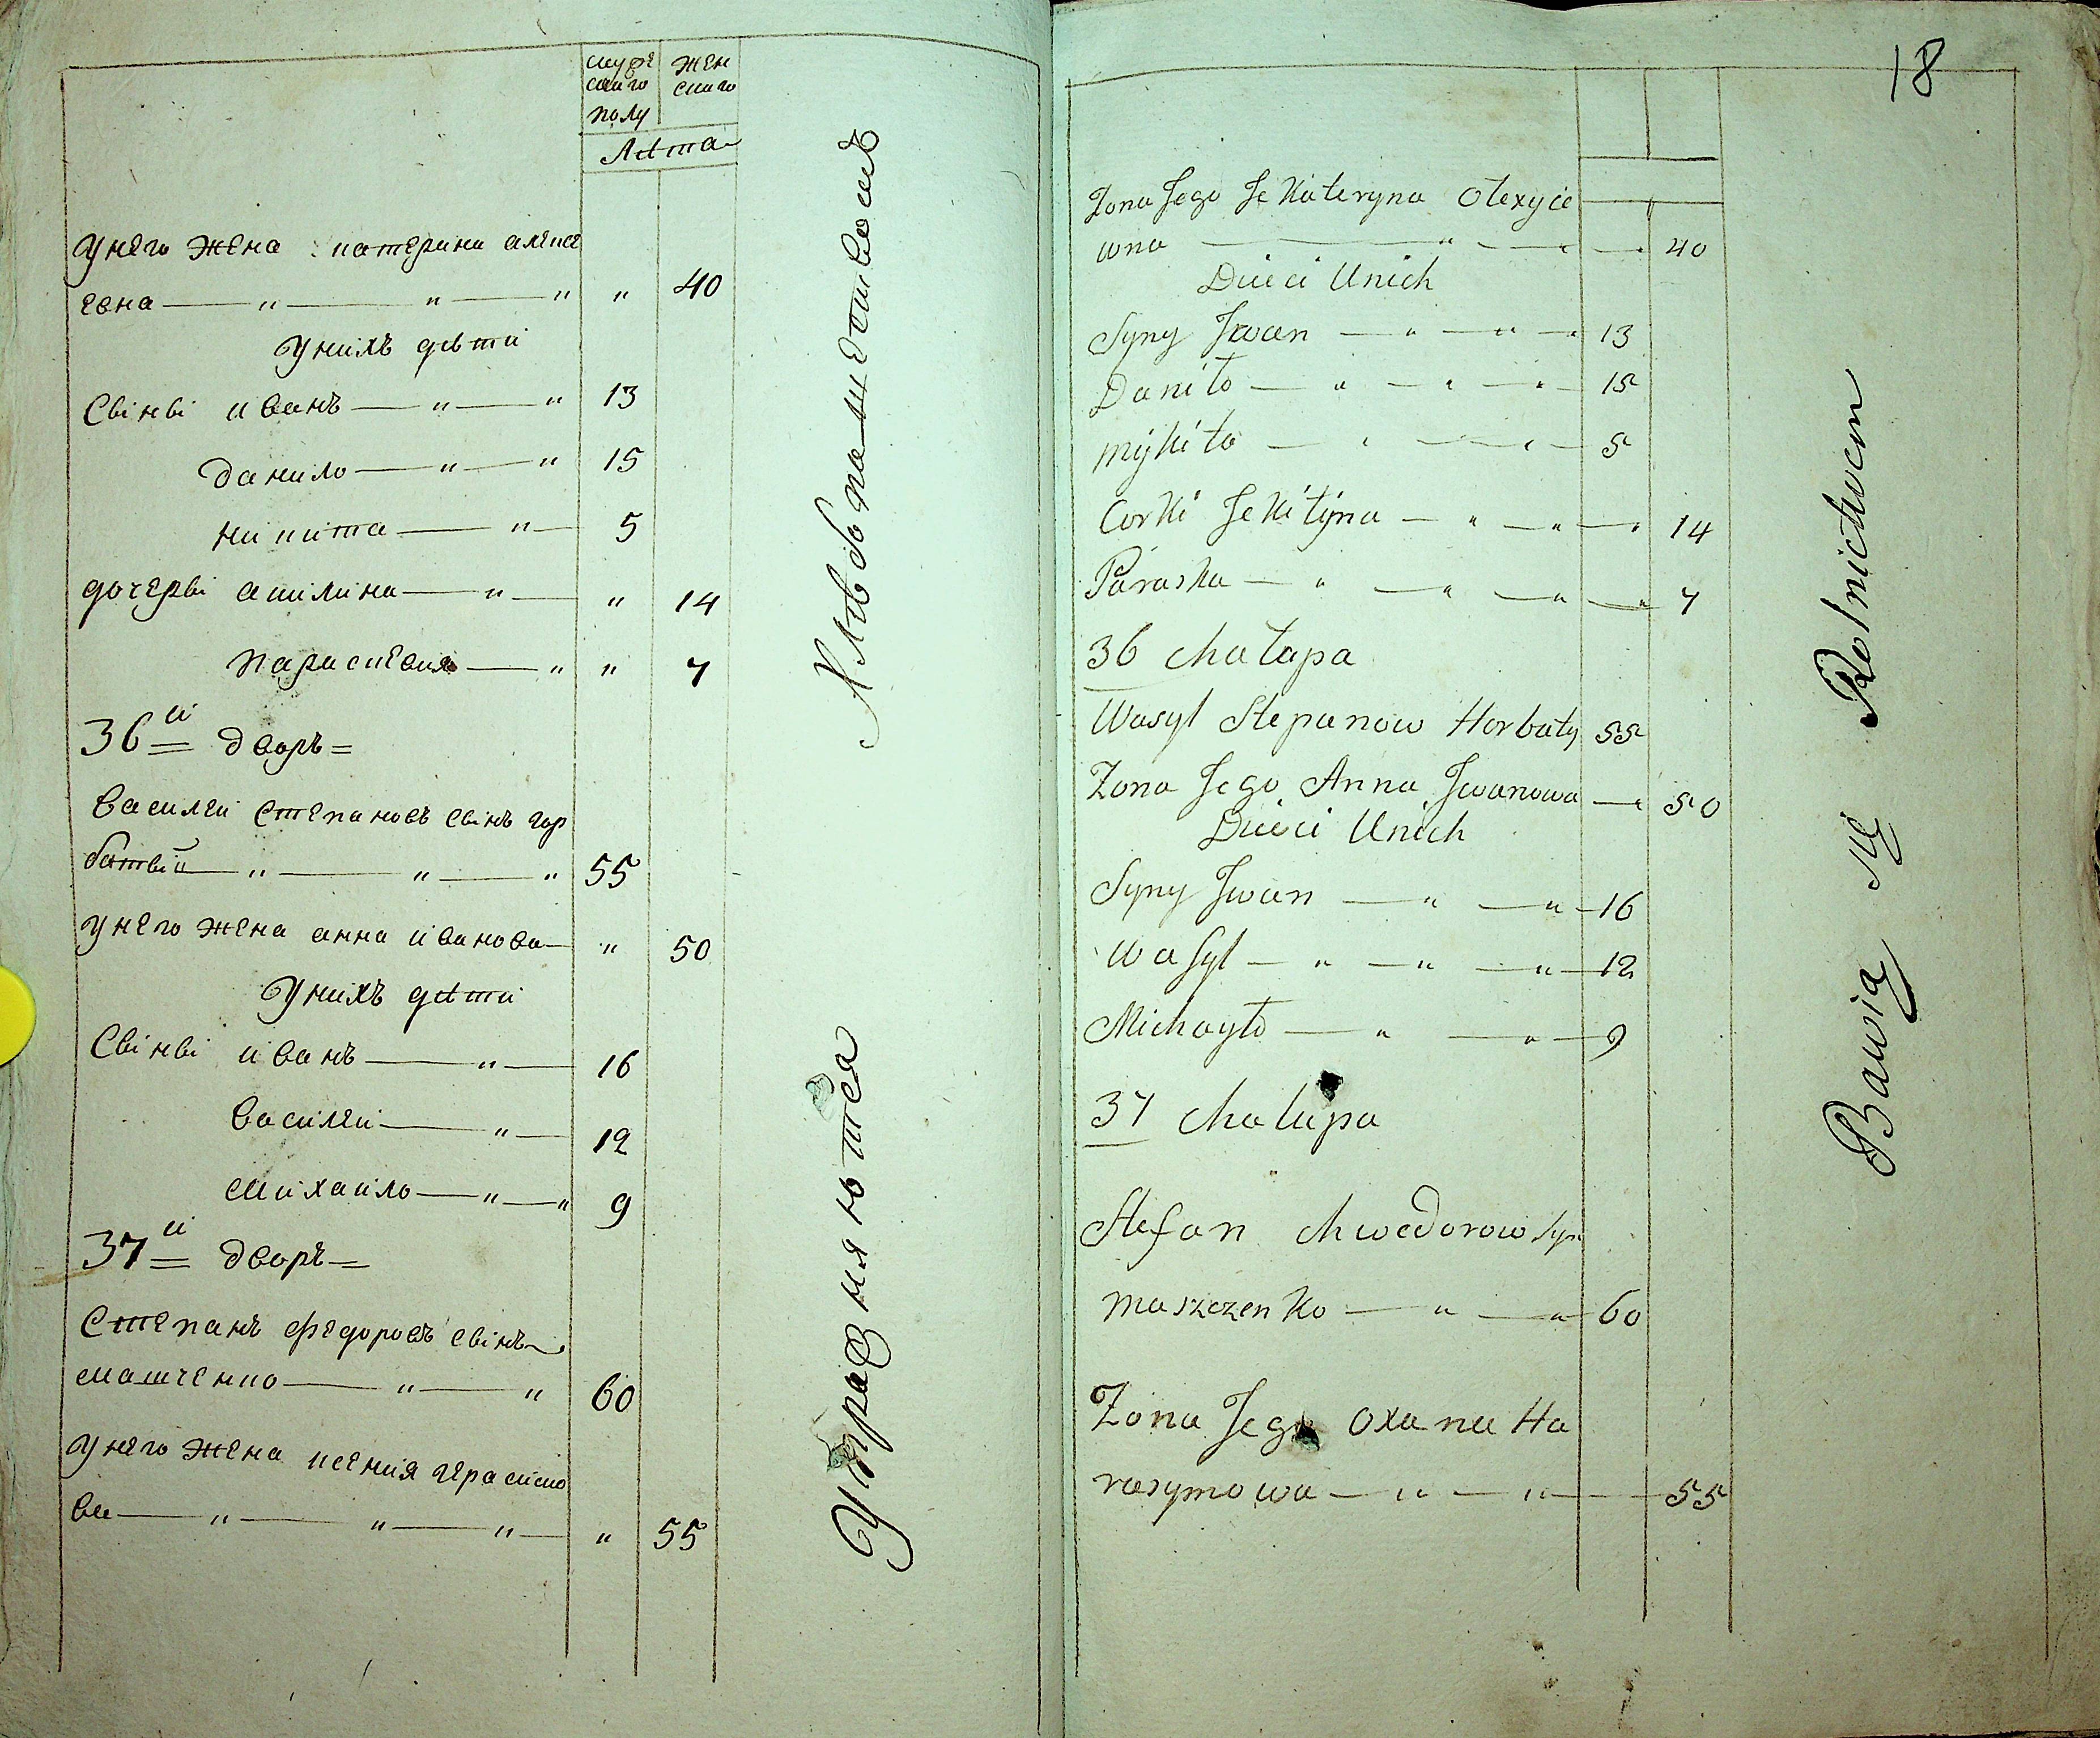 мужескаго полу
женскаго
Лѣта
У него жена катерина алексе
евна — " — " — " " 40
У нихъ дѣти
Сыны иванъ — " — " 13
данило — " — " 15
никита — " — 5
дочеры акилина — " — " 14
параскевия — " " 7
36й дворъ =
василей степановъ сынъ гор
батый — " — " — " 55
у него жена анна иванова — " 50
У нихъ дѣти
Сыны иванъ — " — 16
василеи — " — 12
михаило — " — " 9
37й дворъ =
Степанъ федоровъ сынъ
мащенко — " — " 60
У него жена ксения герасимо
ва — " — " — " — " 55
Упражняются Хлѣбопашествомъ
18
Zona Jego Jekateryna Olexyie
wna — " — " — 40
Dzieci Unich
Syny Jwan — " — " — " 13
Daniło — " — " — " — 15
mykita — " — " — 5
Corki Jekilyna — " — " — " 14
Paraska — " — " — " — " 7
36 chałupa
Wasyl Stepanow Horbaty 55
Zona Jego Anna Jwanowa — " 50
Dzieci Unich
Syny Jwan — " — " — 16
Wasyl — " — " — " — 12
Michayło — " — " — 9
37 chalupa
Stefan chwedorow syn
maszczenko — " — " 60
Zona Jego oxana Ha
rasymowa — " — " — 55
Bawią się Rolnictwem